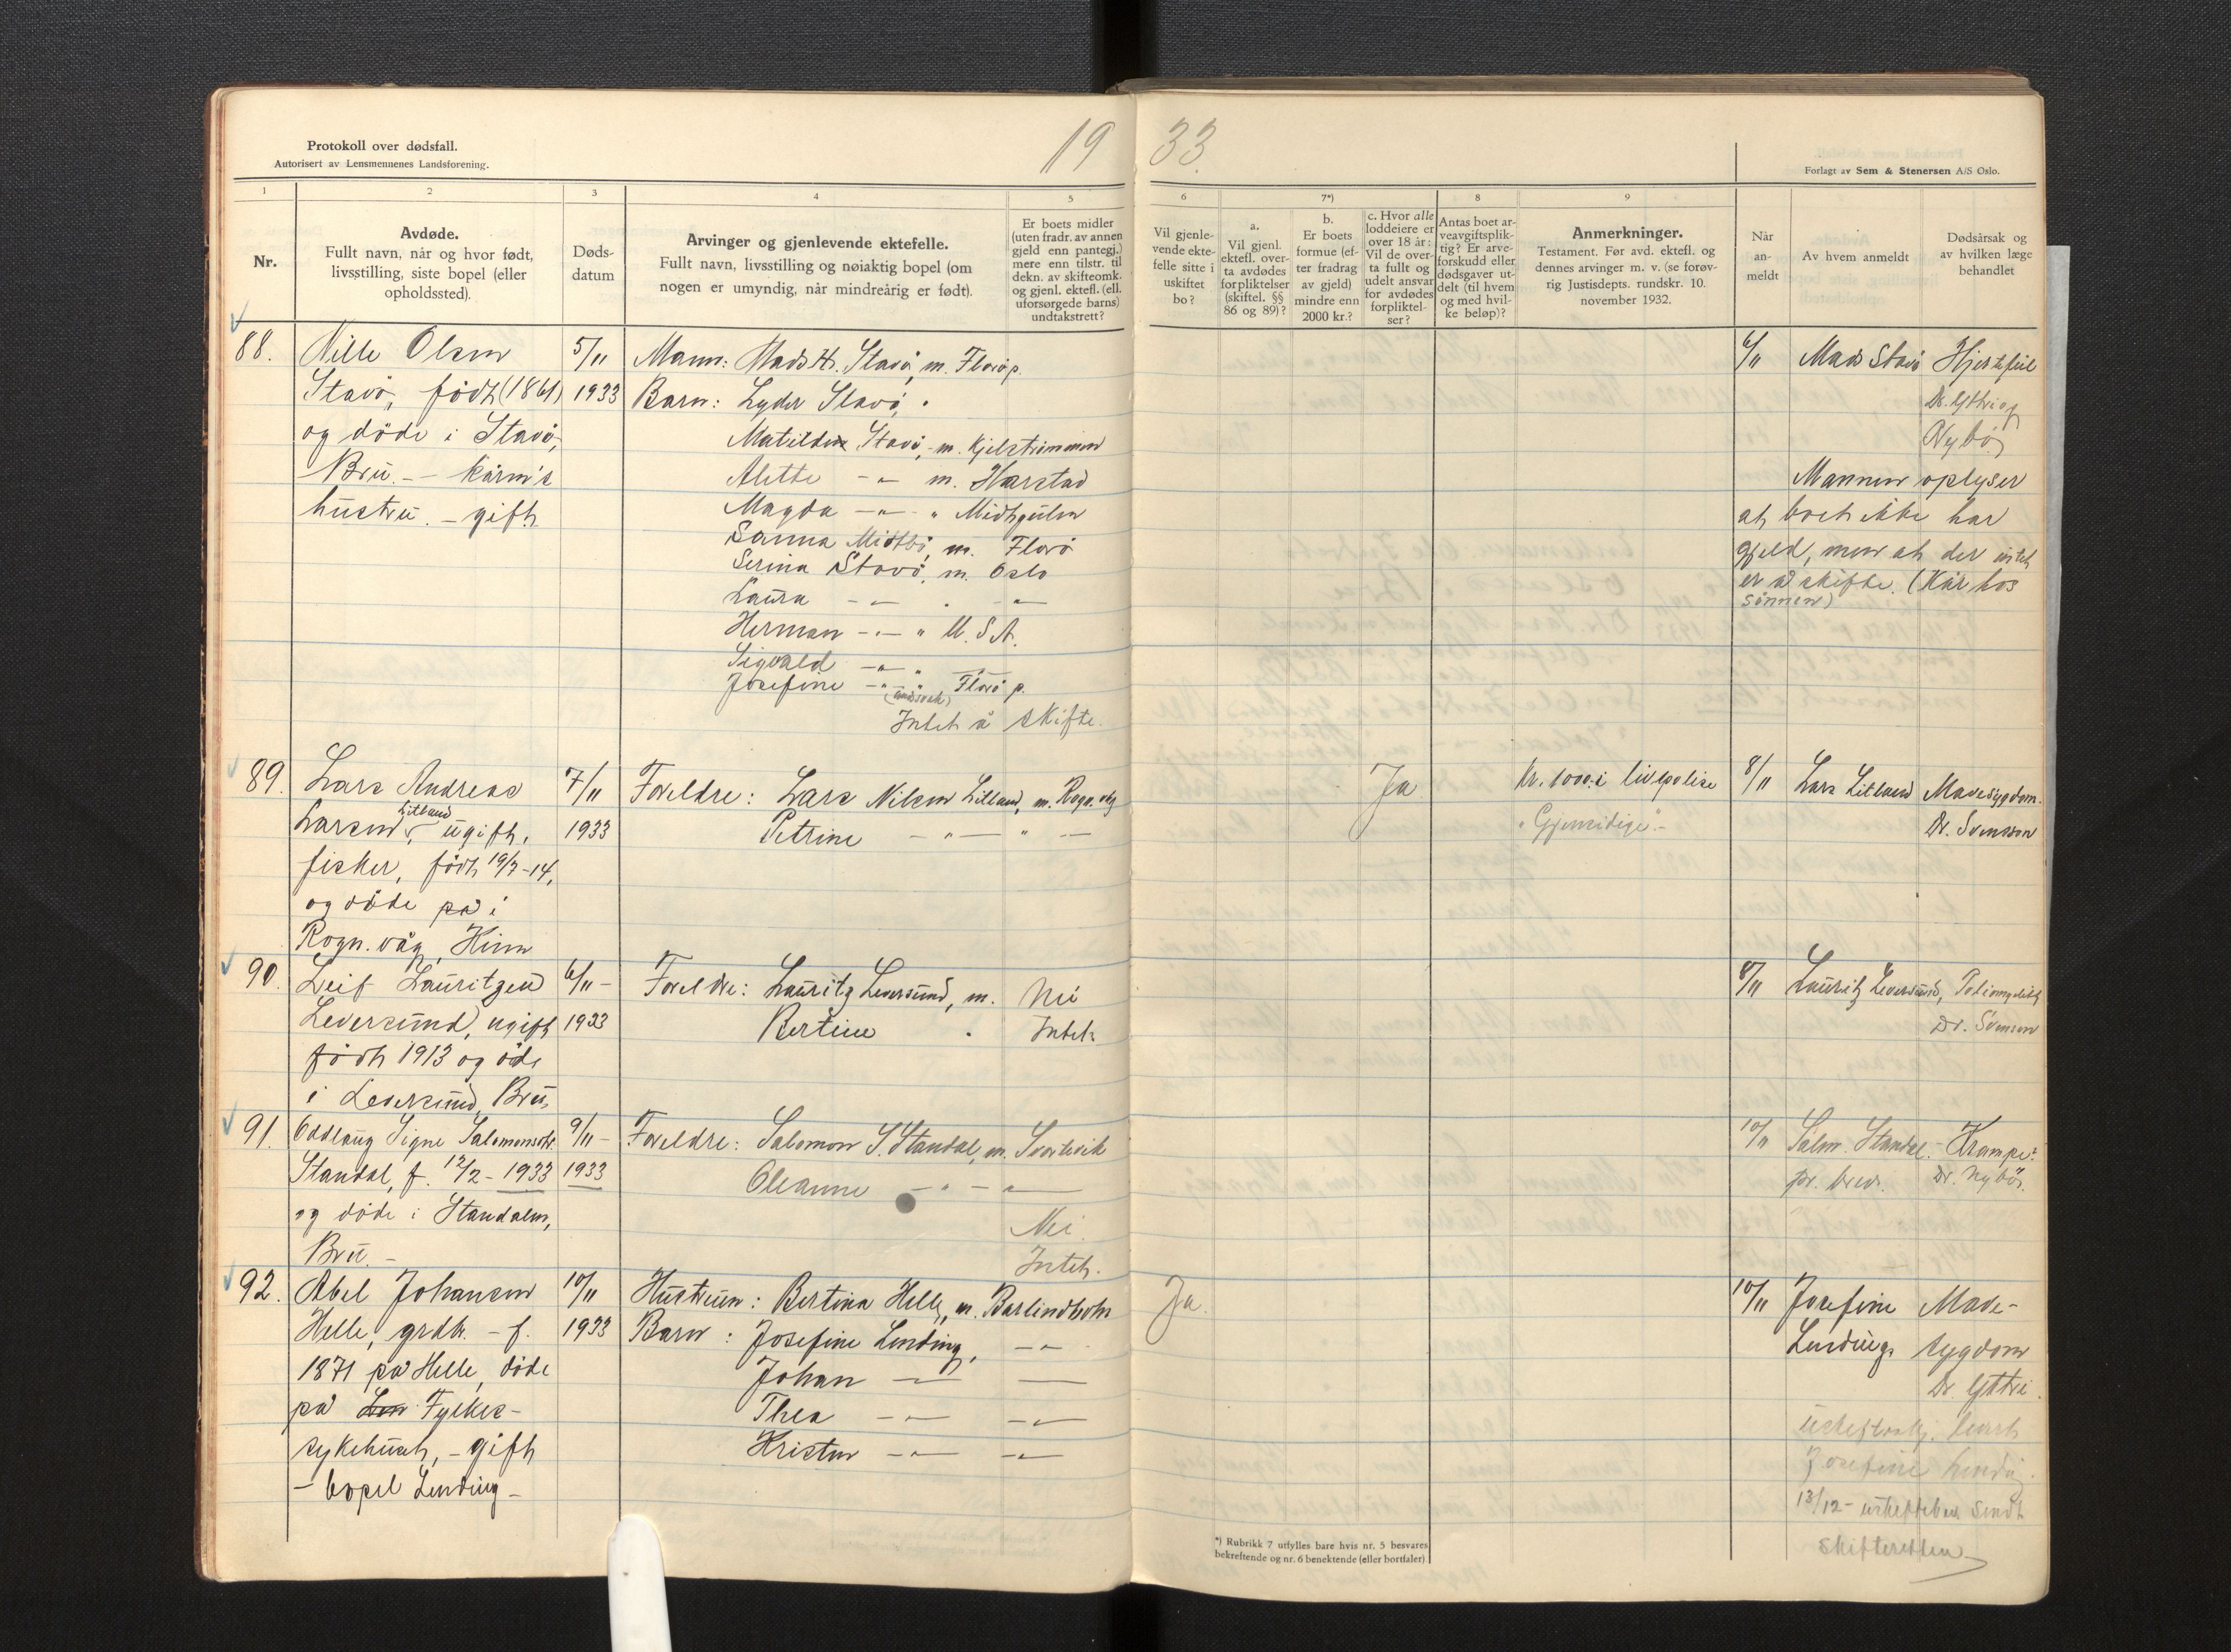 Protokoll over dødsfall.
Autorisert av Lensmennenes Landsforening.
19 33
Forlagt av Sem & Stenersen A/S Oslo.
1 2 3 4 5 6 7*) 8 9
Nr.
Avdøde.
Fullt navn, når og hvor født,
livsstilling, siste bopel (eller
opholdssted).
Døds-
datum
Arvinger og gjenlevende ektefelle.
Fullt navn, livsstilling og nøiaktig bopel (om
nogen er umyndig, når mindreårig er født).
Er boets midler
(uten fradr. av annen
gjeld enn pantegj.)
mere enn tilstr. til
dekn. av skifteomk.
og gjenl. ektef. (ell.
uforsørgede barns)
undtakstrett?
Vil gjenle-
vende ekte-
felle sitte i
uskiftet
bo?
a.
Vil gjenl.
ektefl. over-
ta avdødes
forpliktelser
(skiftel. §§
86 og 89)?
b.
Er boets
formue (ef-
ter fradrag
av gjeld)
mindre enn
2000 kr.?
c. Hvor alle
loddeiere er
over 18 år:
Vil de over-
ta fullt og
udelt ansvar
for avdødes
forpliktel-
ser?
Antas boet ar-
veavgiftsplik-
tig? Er arve-
forskudd eller
dødsgaver ut-
delt (til hvem
og med hvil-
ke beløp)?
Anmerkninger.
Testament. Før avd. ektefl. og
dennes arvinger m. v. (se forøv-
rig Justisdepts. rundskr. 10.
november 1932.
Når
an-
meldt
Av hvem anmeldt
Dødsårsak og
av hvilken læge
behandlet
88.
Nille Olsen
Stavö, födt (1861)
og döde i Stavö,
Bru. - kårm's
hustru. - gift.
5/11
1933
Mann: Mads H. Stavö, m. Florö p.
Barn: Lyder Stavö, "
Matilde Stavö, m. Kjelströmmen
Alette -"- m. Harstad
Magda -"- " Midtgulen
Sanna Midtbö, m. Florö
Serina Stavö, m. Oslo
Laura -"- " -"-
Herman -"- " U.S.A.
Sigvald -"- "
Josefine -"- " Florö p.
Intet å skifte.
6/11
Mads Stavö
Hjertefeil
Dr. Yttri og
Nybö
Mannen oplyser
at boet ikke har
gjeld, men at der intet
er å skifte. (Kår hos
sönnen)
89.
Lars Andreas
Larsen Litland, ugift,
fisker, födt 19/7-14,
og döde på i
Rogn.våg, Kinn
7/11
1933
Foreldre: Lars Nilsen Litland, m. Rogn.våg
Petrine -"- " -
Ja
Kr. 1000.- i livspolise
"Gjensidige".-
8/11
Lars Litland
Mavesygdom.
Dr. Svensson
90.
Leif Lauritzen
Leversund, ugift
födt 1913 og döde
i Leversund, Bru,
6/11-
1933
Foreldre: Lauritz Leversund, m.
Bertine "
Nei
Intet.
8/11
Lauritz Leversund,
Dr. Svenson
91.
Oddlaug Signe Salomonsdtr.
Standal, f. 12/2-1933
og döde i Standalen,
Bru. -
9/11-
1933
Foreldre: Salomon S. Standal, m. Svortevik
Oleanne -"- -"-
Nei.
Intet.
10/11
Salm. Standal.
pr. brev.
Krampe.
Dr. Nybö.
92.
Abel Johansen
Helle, grdb. - f.
1871 på Helle, döde
på Fylkes-
sykehuset, - gift
- bopel Lending -
10/11
1933
Hustruen: Bertina Helle, m. Barlindbotn
Barn: Josefine Lending, -"-
Johan -"-
Thea -"- -"-
Kristen -"- -"-
Ja.
10/11
Josefine
Lending.
Mave-
sygdom
Dr. Yttri.
Josefine Lending.
13/12- sendt
Skifteretten
*) Rubrikk 7 utfylles bare hvis nr. 5 besvares
bekreftende og nr. 6 benektende (eller bortfaler).